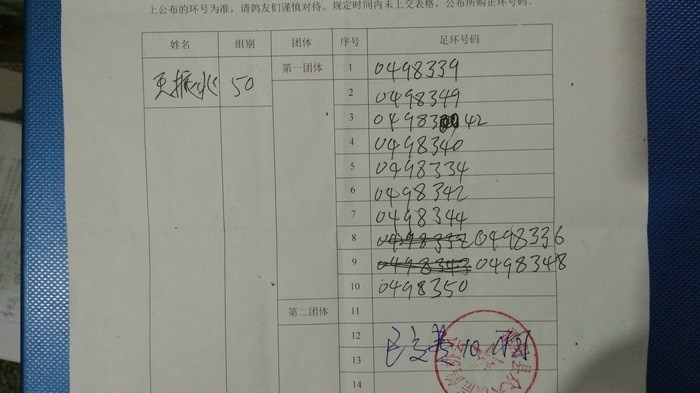 上公布的环号为准，请鸽友们谨慎对待。规定时间内未上交表格，公布所购正环号码。
姓名 组别 团体 序号 足环号码
50 第一团体 1 0498339
2 0498349
3 0498342
4 0498340
5 0498334
6 0498342
7 0498344
8 0498336
9 0498348
10 0498350
第二团体 11
12
已交费10
13
14